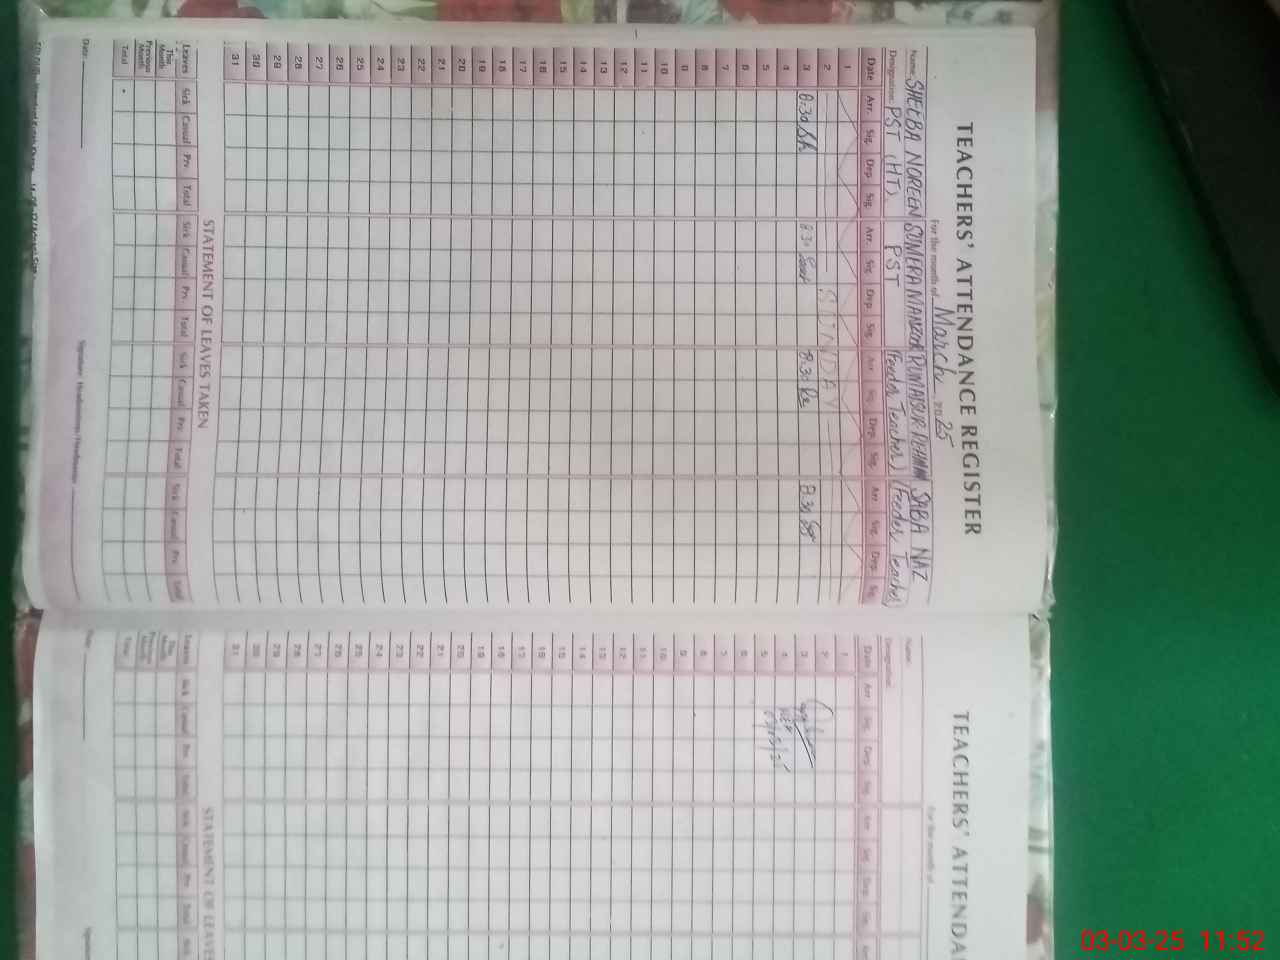 TEACHERS' ATTENDANCE REGISTER
For the month of March 2025
Name SHEEBA NOREEN SUMERA MANZOOR RUMAISUR REHMAN SABA NAZ
Designation: PST (HT). PST (Feeder Teacher) (Feeder Teacher)
Date Arr. Sig. Dep. Sig. Arr. Sig. Dep. Sig. Arr. Sig. Dep. Sig. Arr. Sig. Dep. Sig.
1
2 SUNDAY
3 8:30 Sh 8:30 8:30 8:30
4
5
6
7
8
9
10
11
12
13
14
15
16
17
18
19
20
21
22
23
24
25
26
27
28
29
30
31
STATEMENT OF LEAVES TAKEN
Leaves Sick Casual Prv. Total Sick Casual Prv. Total Sick Casual Prv. Total Sick Casual Prv. Total
This Month
Previous Month
Total
Date: Signature Headmaster/Headmistress
TEACHERS' ATTENDA
For the month of
Name:
Designation:
Date Arr. Sig. Dep. Sig. Arr. Sig. Dep. Sig.
1
2
3
4
5
6
7
8
9
10
11
12
13
14
15
16
17
18
19
20
21
22
23
24
25
26
27
28
29
30
31
STATEMENT OF LEAVE
Leaves Sick Casual Prv. Total Sick Casual Prv. Total Sick
This Month
Previous Month
Total
Date:
03-03-25 11:52